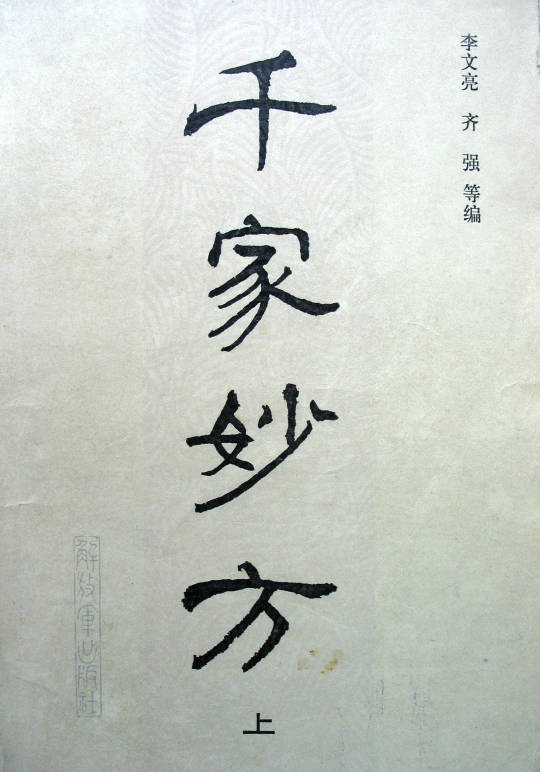 李文亮 齐 强 等编
千家妙方
上
解放军出版社